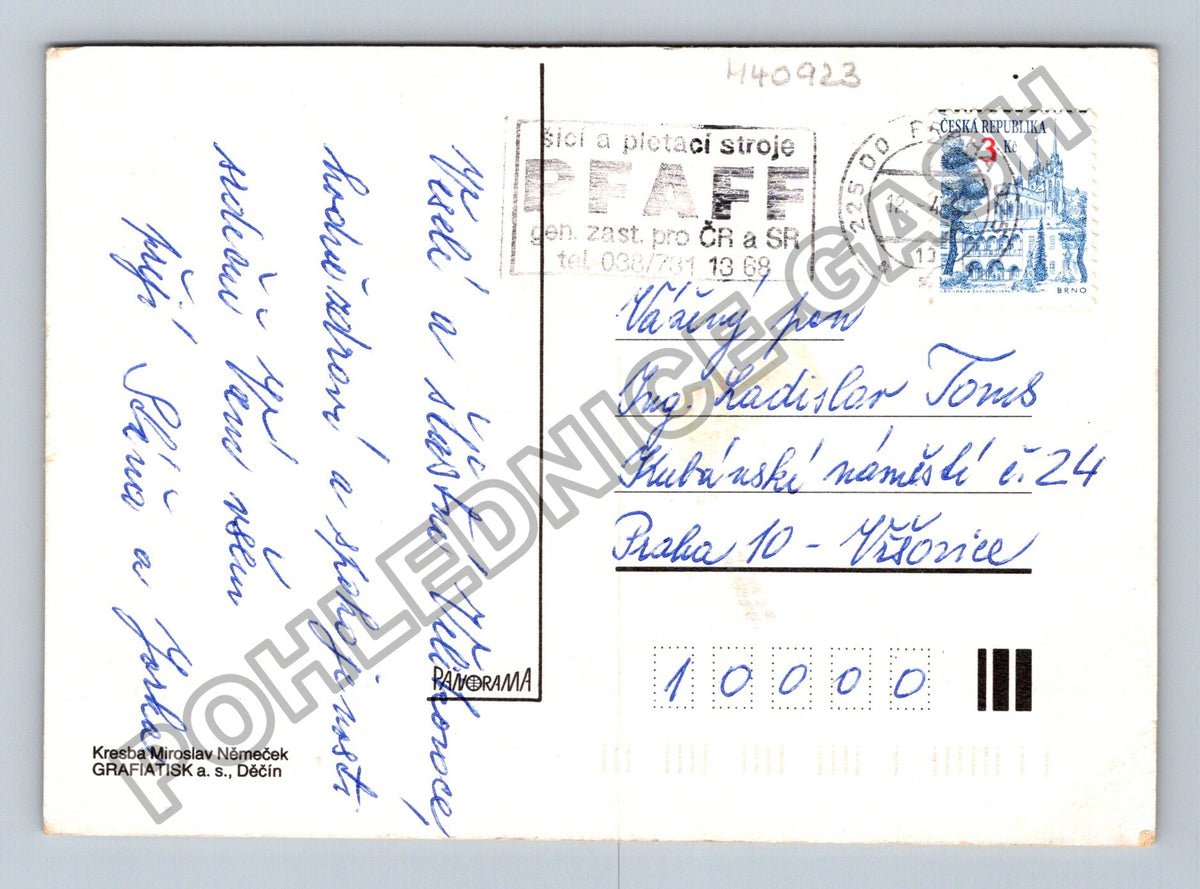 H40923
šicí a pletací stroje
PFAFF
gen. zast. pro ČR a SR
tel. 038/731 13 68
225 00
12. -4.
ČESKÁ REPUBLIKA
3 Kč
BRNO
Veselé a šťastné Velikonoce,
hodně zdraví a spokojenosti
srdečně Vám všem
přejí Sláva a
Vážený pan
Ing. Ladislav Toms
Kubánské náměstí č. 24
Praha 10 - Vršovice
10000
PANORAMA
Kresba Miroslav Němeček
GRAFIATISK a. s., Děčín
POHLEDNICE-GASH